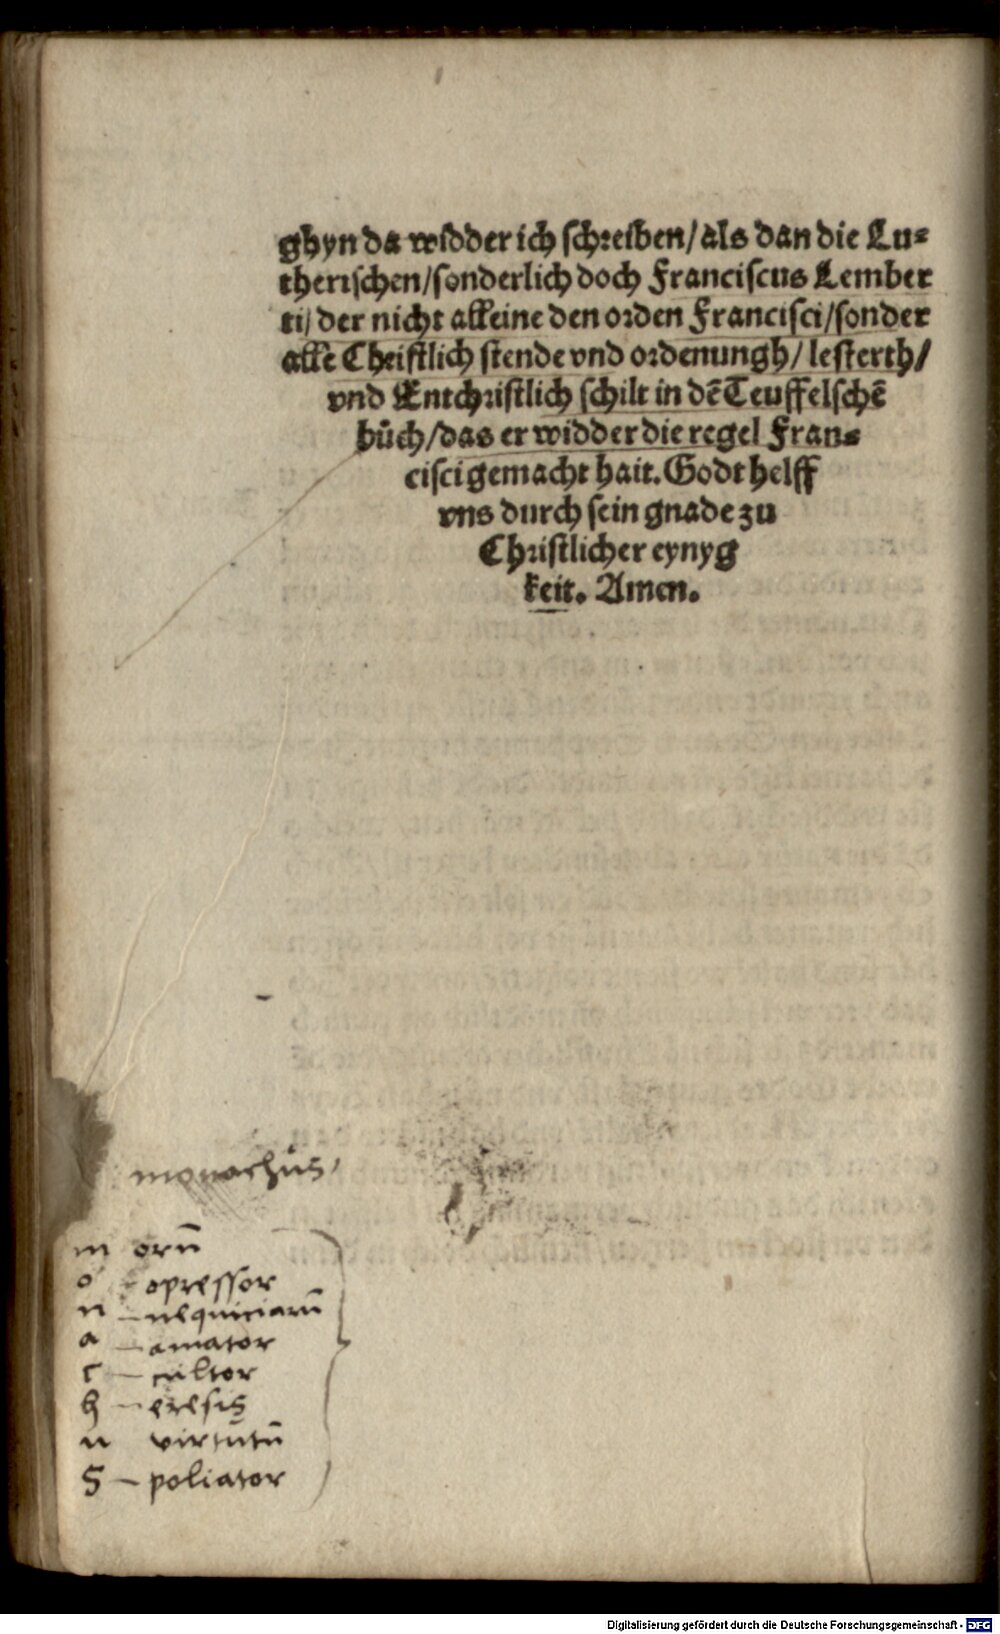 ghyn da widder ich schreiben/als dan die Lu⸗
therischen/sonderlich doch Franciscus Lember
ti/ der nicht alleine den orden Francisci/sonder
alle Christlich stende vnd ordenungh/ lesterth/
vnd Entchristlich schilt in dē Teuffelschē
bůch/das er widder die regel Fran⸗
cisci gemacht hait. Godt helff
vns durch sein gnade zu
Christlicher eynyg
keit. Amen.
monachus,
m orū
o – opressor
n – nequiciarū
a – amator
c – cultor
h – eresis
u virtutū
S – poliator
Digitalisierung gefördert durch die Deutsche Forschungsgemeinschaft - DFG